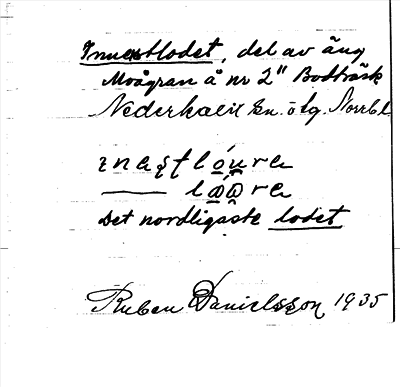 Innestlodet, del av äng
Moågran å nr 2" Bodträsk
Nederkalix sn. ö lg. Norrb l.
ɩnest lóure
—— lóore
Det nordligaste lodet
Ruben Danielsson 1935